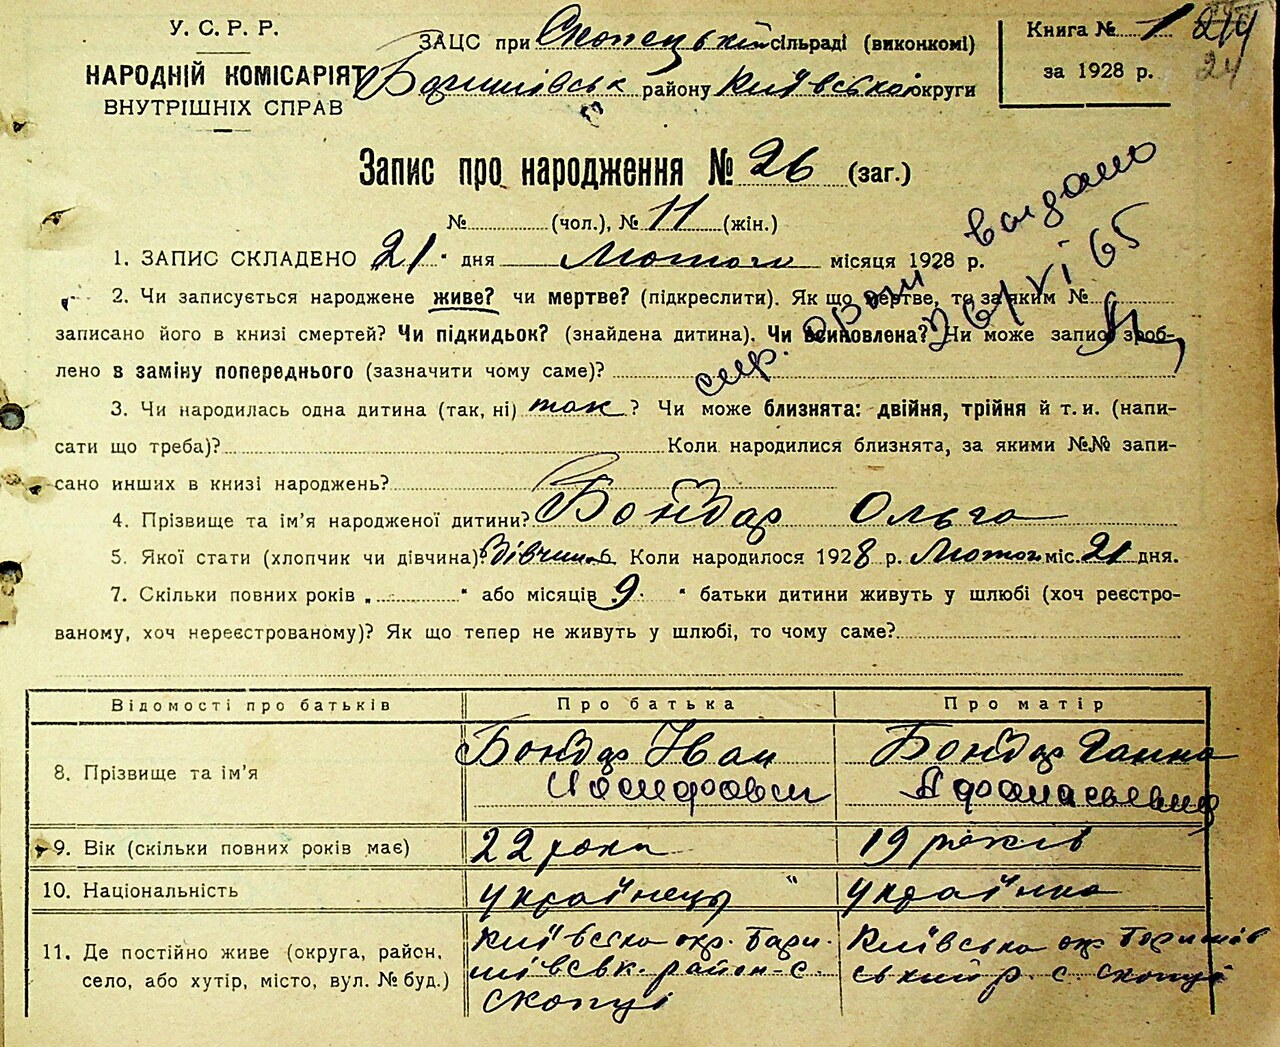 У. С. Р. Р.
НАРОДНІЙ КОМІСАРІЯТ
ВНУТРІШНІХ СПРАВ
ЗАЦС при Скопецькій сільраді (виконкомі)
Баришівськ району Київської округи
Книга № 1
за 1928 р.
24
Запис про народження № 26 (заг.)
№ (чол.), № 11 (жін.)
1. ЗАПИС СКЛАДЕНО 21 " дня Лютого місяця 1928 р.
2. Чи записується народжене живе? чи мертве? (підкреслити). Як що мертве, то за яким №
записано його в книзі смертей? Чи підкидьок? (знайдена дитина). Чи всиновлена? Чи може запис зроб-
лено в заміну попереднього (зазначити чому саме)?
видано
26/VI 65
3. Чи народилась одна дитина (так, ні) так ? Чи може близнята: двійня, трійня й т. и. (напи-
сати що треба)? Коли народилися близнята, за якими №№ запи-
сано инших в книзі народжень?
4. Прізвище та ім'я народженої дитини? Бондар Ольга
5. Якої стати (хлопчик чи дівчина)? Дівчин. 6. Коли народилося 1928 р. Лютог міс. 21 дня.
7. Скільки повних років „ " або місяців 9 " батьки дитини живуть у шлюбі (хоч реєстро-
ваному, хоч нереєстрованому)? Як що тепер не живуть у шлюбі, то чому саме?
Відомості про батьків Про батька Про матір
8. Прізвище та ім'я Бондар Іван Бондар Ганна
Афанасьевна
9. Вік (скільки повних років має) 22 роки 19 років
10. Національність українець " українка
11. Де постійно живе (округа, район, село, або хутір, місто, вул. № буд.)
Київська окр. Бари-
шівськ. район - с.
Скопці
Київська окр Баришів
ський р. с Скопці